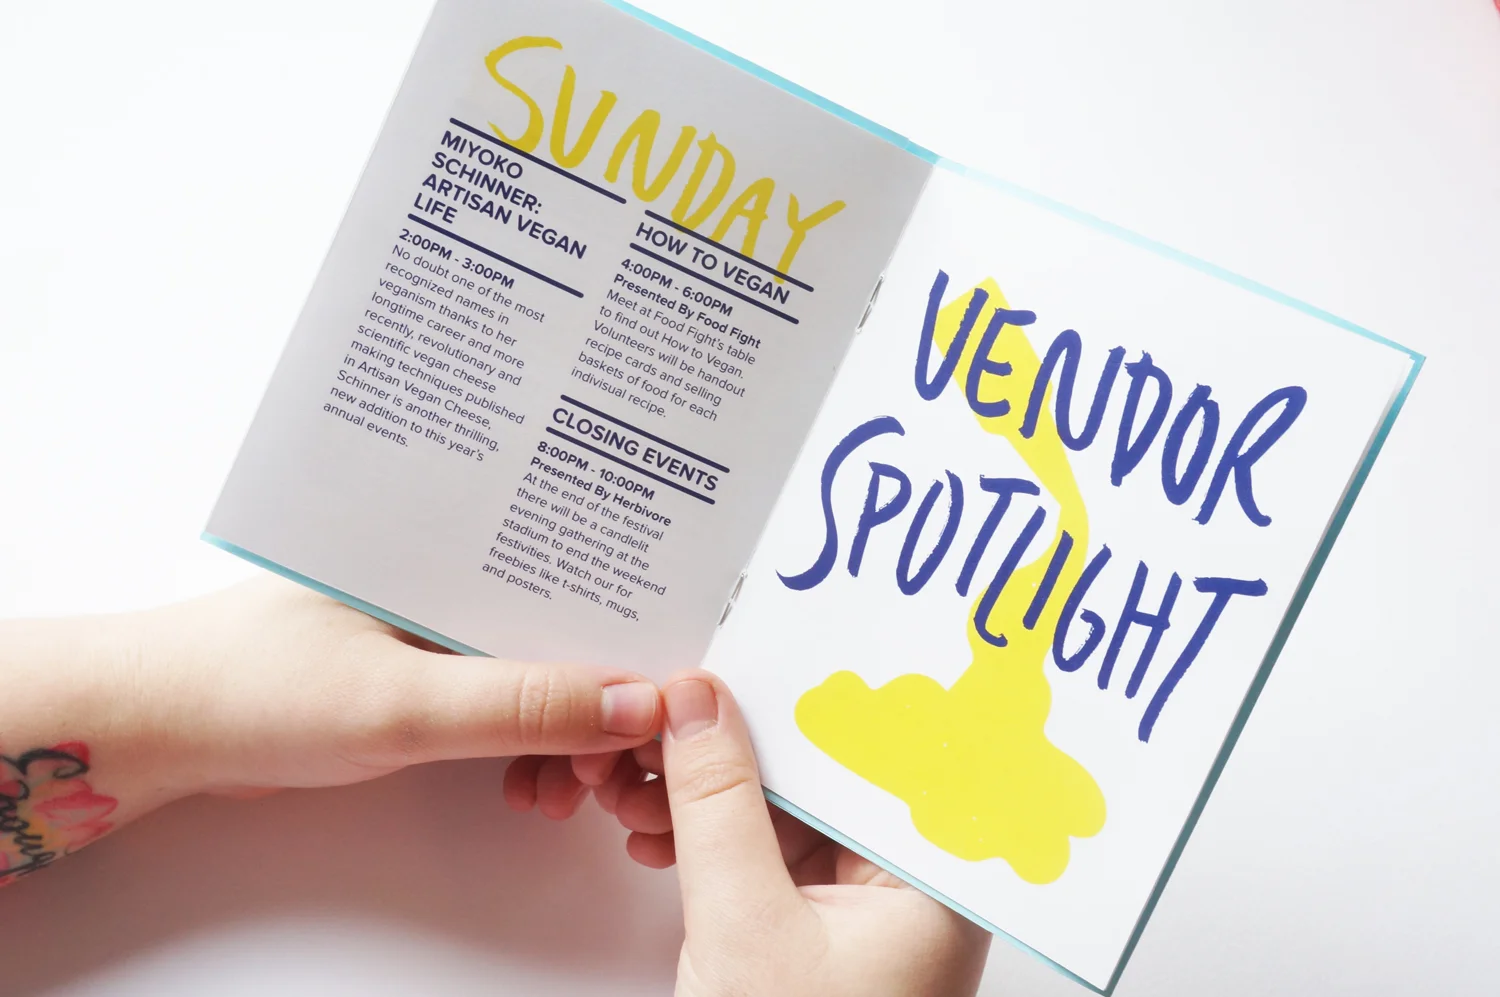 SUNDAY
MIYOKO
SCHINNER:
ARTISAN VEGAN
LIFE
2:00PM - 3:00PM
No doubt one of the most
recognized names in
veganism thanks to her
longtime career and more
recently, revolutionary and
scientific vegan cheese
making techniques published
in Artisan Vegan Cheese,
Schinner is another thrilling,
new addition to this year's
annual events.
HOW TO VEGAN
4:00PM - 6:00PM
Presented By Food Fight
Meet at Food Fight's table
to find out How to Vegan.
Volunteers will be handout
recipe cards and selling
baskets of food for each
indivisual recipe.
CLOSING EVENTS
8:00PM - 10:00PM
Presented By Herbivore
At the end of the festival
there will be a candlelit
evening gathering at the
stadium to end the weekend
festivities. Watch our for
freebies like t-shirts, mugs,
and posters.
VENDOR
SPOTLIGHT
enough